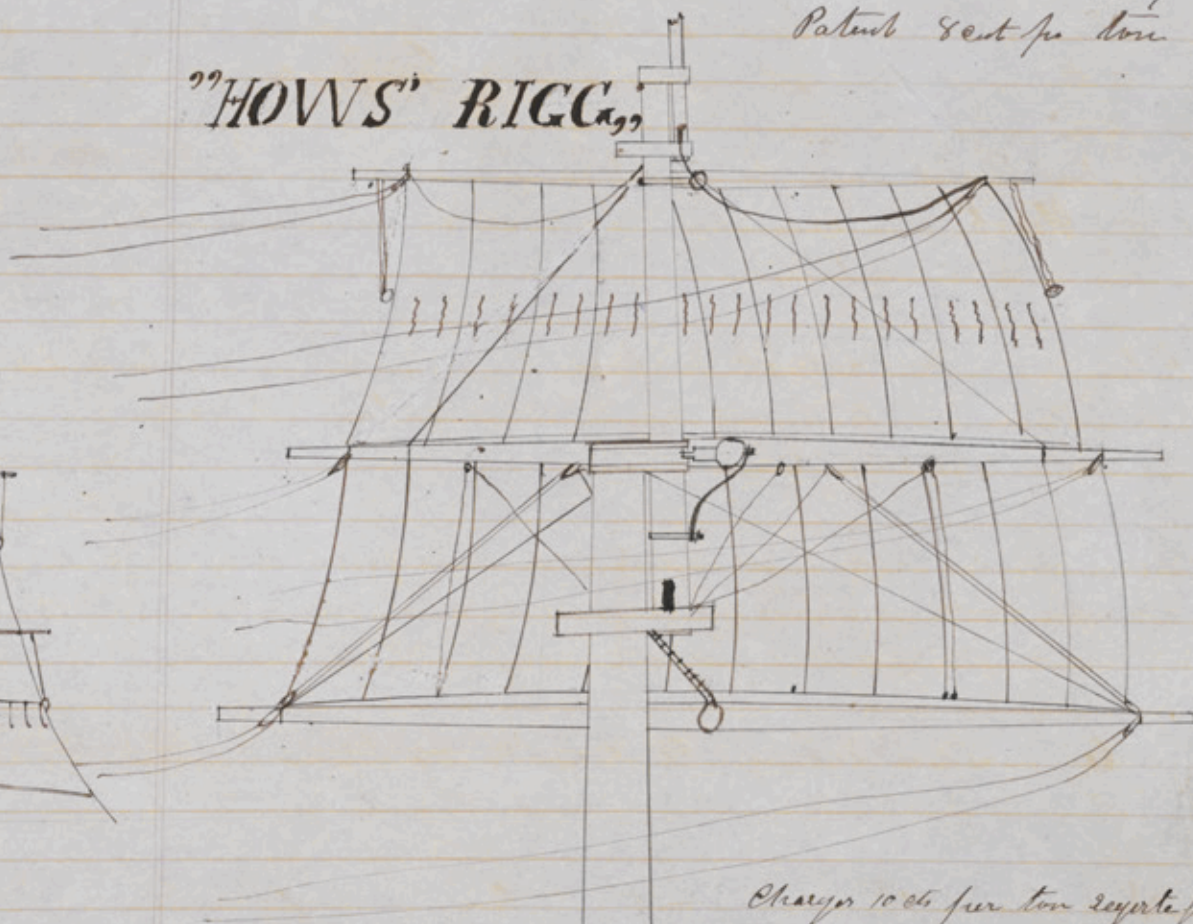 Patent 8 cent pr ton
"HOWS' RIGG„
Charges 10 cts per ton